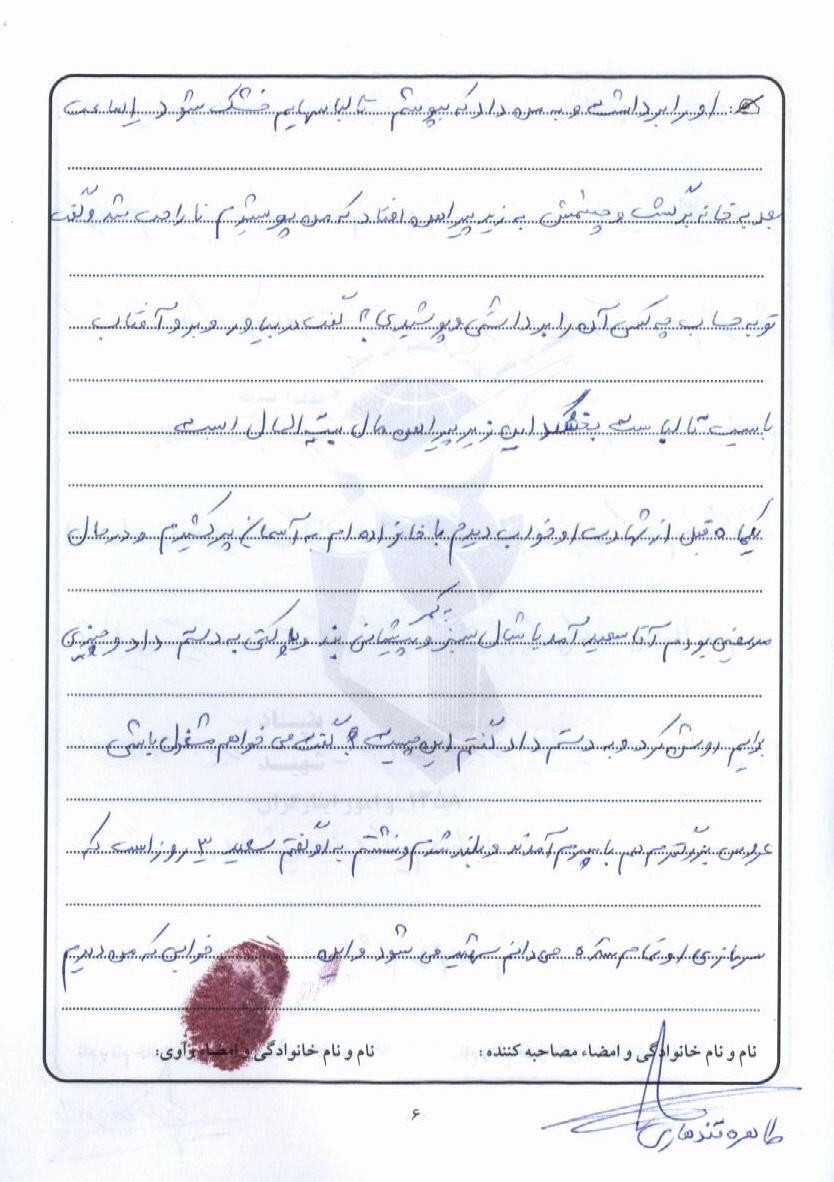 : او را برداشت و به من داد که بپوشم تا لباسهایم خشک شود و ساعت
بعد به خانه برگشت و چشمش به زیر پیراهن افتاد که من پوشیدم ناراحت شد و گفت
تو به حساب چه کسی آن را برداشتی و پوشیدی؟ گفت در بیاور و برو آفتاب
بایست تا لباست بخشکد این زیر پیراهن مال بیت المال است
یکماه قبل از شهادت او خواب دیدم با خانواده ام به آسمان پر کشیدم و در حال
مریضی بودم آقا سعید آمد با شال سبز به کمر و پیشانی بند و پاکتی به دستم داد و چیزی
برایم روشن کرد و به دستم داد گفتم این چیست؟ گفت می خواهم مشغول باشی
عروس بزرگترم هم با پسرم آمدند و بلند شدم و نشستم به او گفتم سعید ۳ روز است که
سربازی او تمام شده می دانم شهید می شود و این خوابی که من دیدم
نام و نام خانوادگی و امضاء مصاحبه کننده : نام و نام خانوادگی و امضاء راوی:
طاهره قندهاری
۶
بنیاد
شهید
و امور ایثارگران